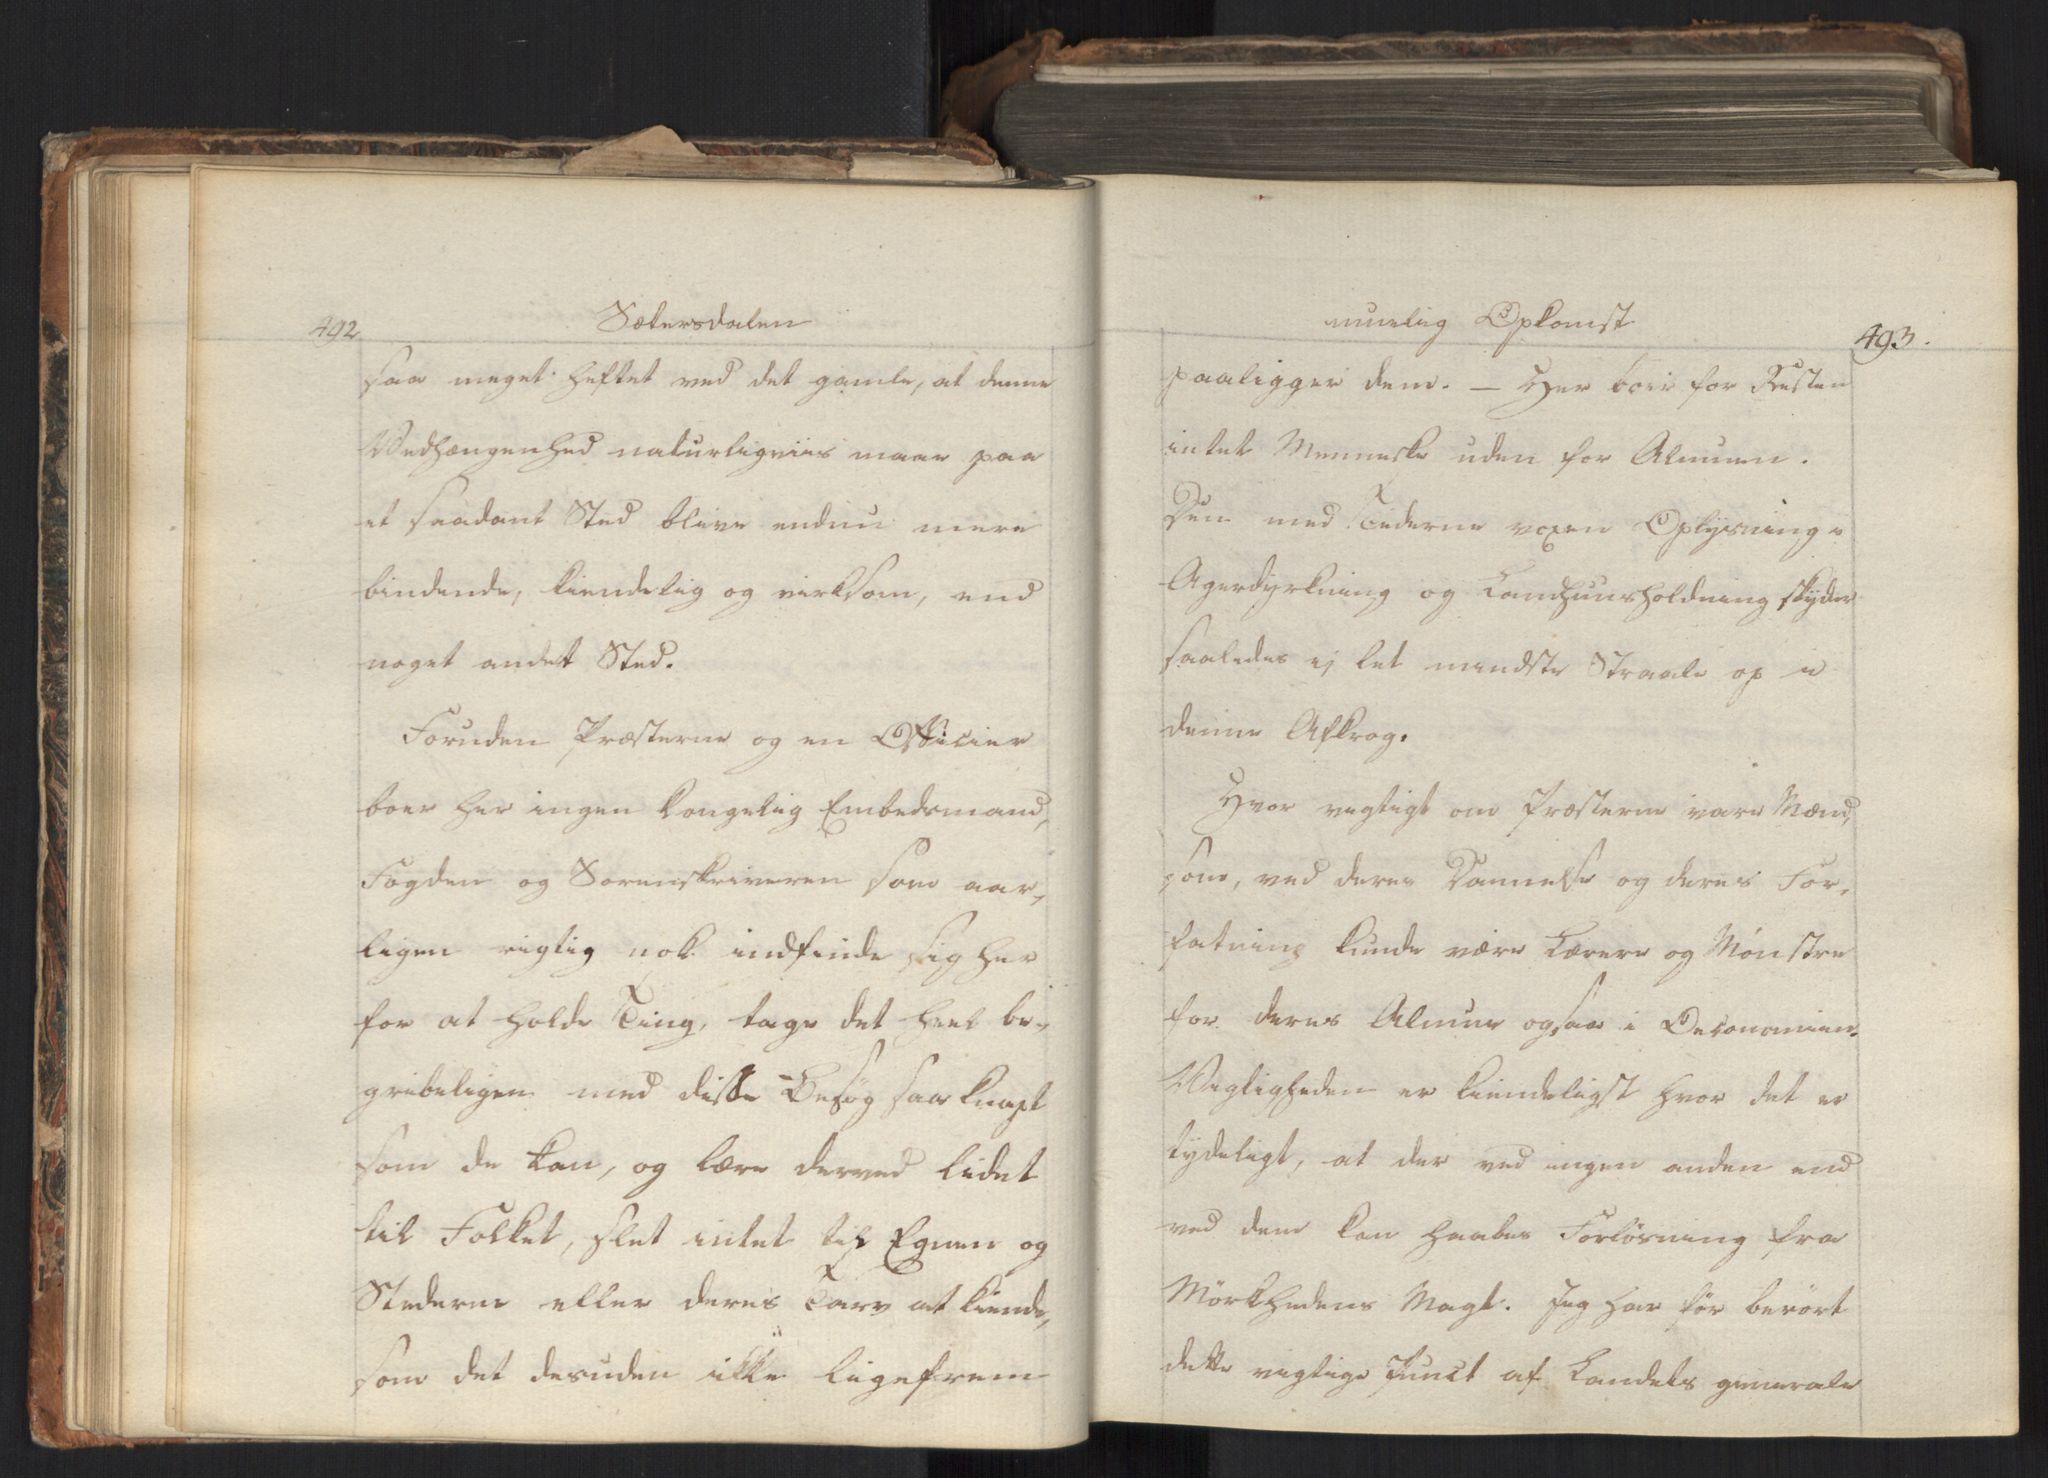 492
Sætersdalen
saa meget heftet ved det gamle, at denne
Vedhængenhed naturligviis maae paa
et saadant Sted blive endnu mere
bindende, kiendelig og virksom, end
noget andet Sted.
Foruden Præsterne og en Officier
boer her ingen kongelig Embedsmand,
Fogden og Sorenskriveren som aar-
ligen rigtig nok indfinde sig her
for at holde Ting, tage det heel be-
gribeligen med disse Besøg saa knapt
som de kan, og lære derved lidet
til Folket, slet intet til Egnen og
Stederne eller deres Tarv at kiende,
som det desuden ikke ligefrem
muelig Opkomst
493.
paaligger dem. — Her boer for Resten
intet Menneske uden for Almuen.
Den med Tiderne voxen Oplysning i
Agerdyrkning og Landhuusholdning skyder
saaledes ej let mindste Straale op i
denne Afkrog.
Hvor vigtigt om Præsterne vare Mænd,
som, ved deres Dannelse og deres For-
fatning kunde være Lærere og Mønstre
for deres Almue ogsaa i Oeconomien.
Vigtigheden er kiendeligst hvor det er
tydeligt, at der ved ingen anden end
ved dem kan haabes Forløsning fra
Mörkhedens Magt. Jeg har för berört
dette vigtige Punct af Landets generale